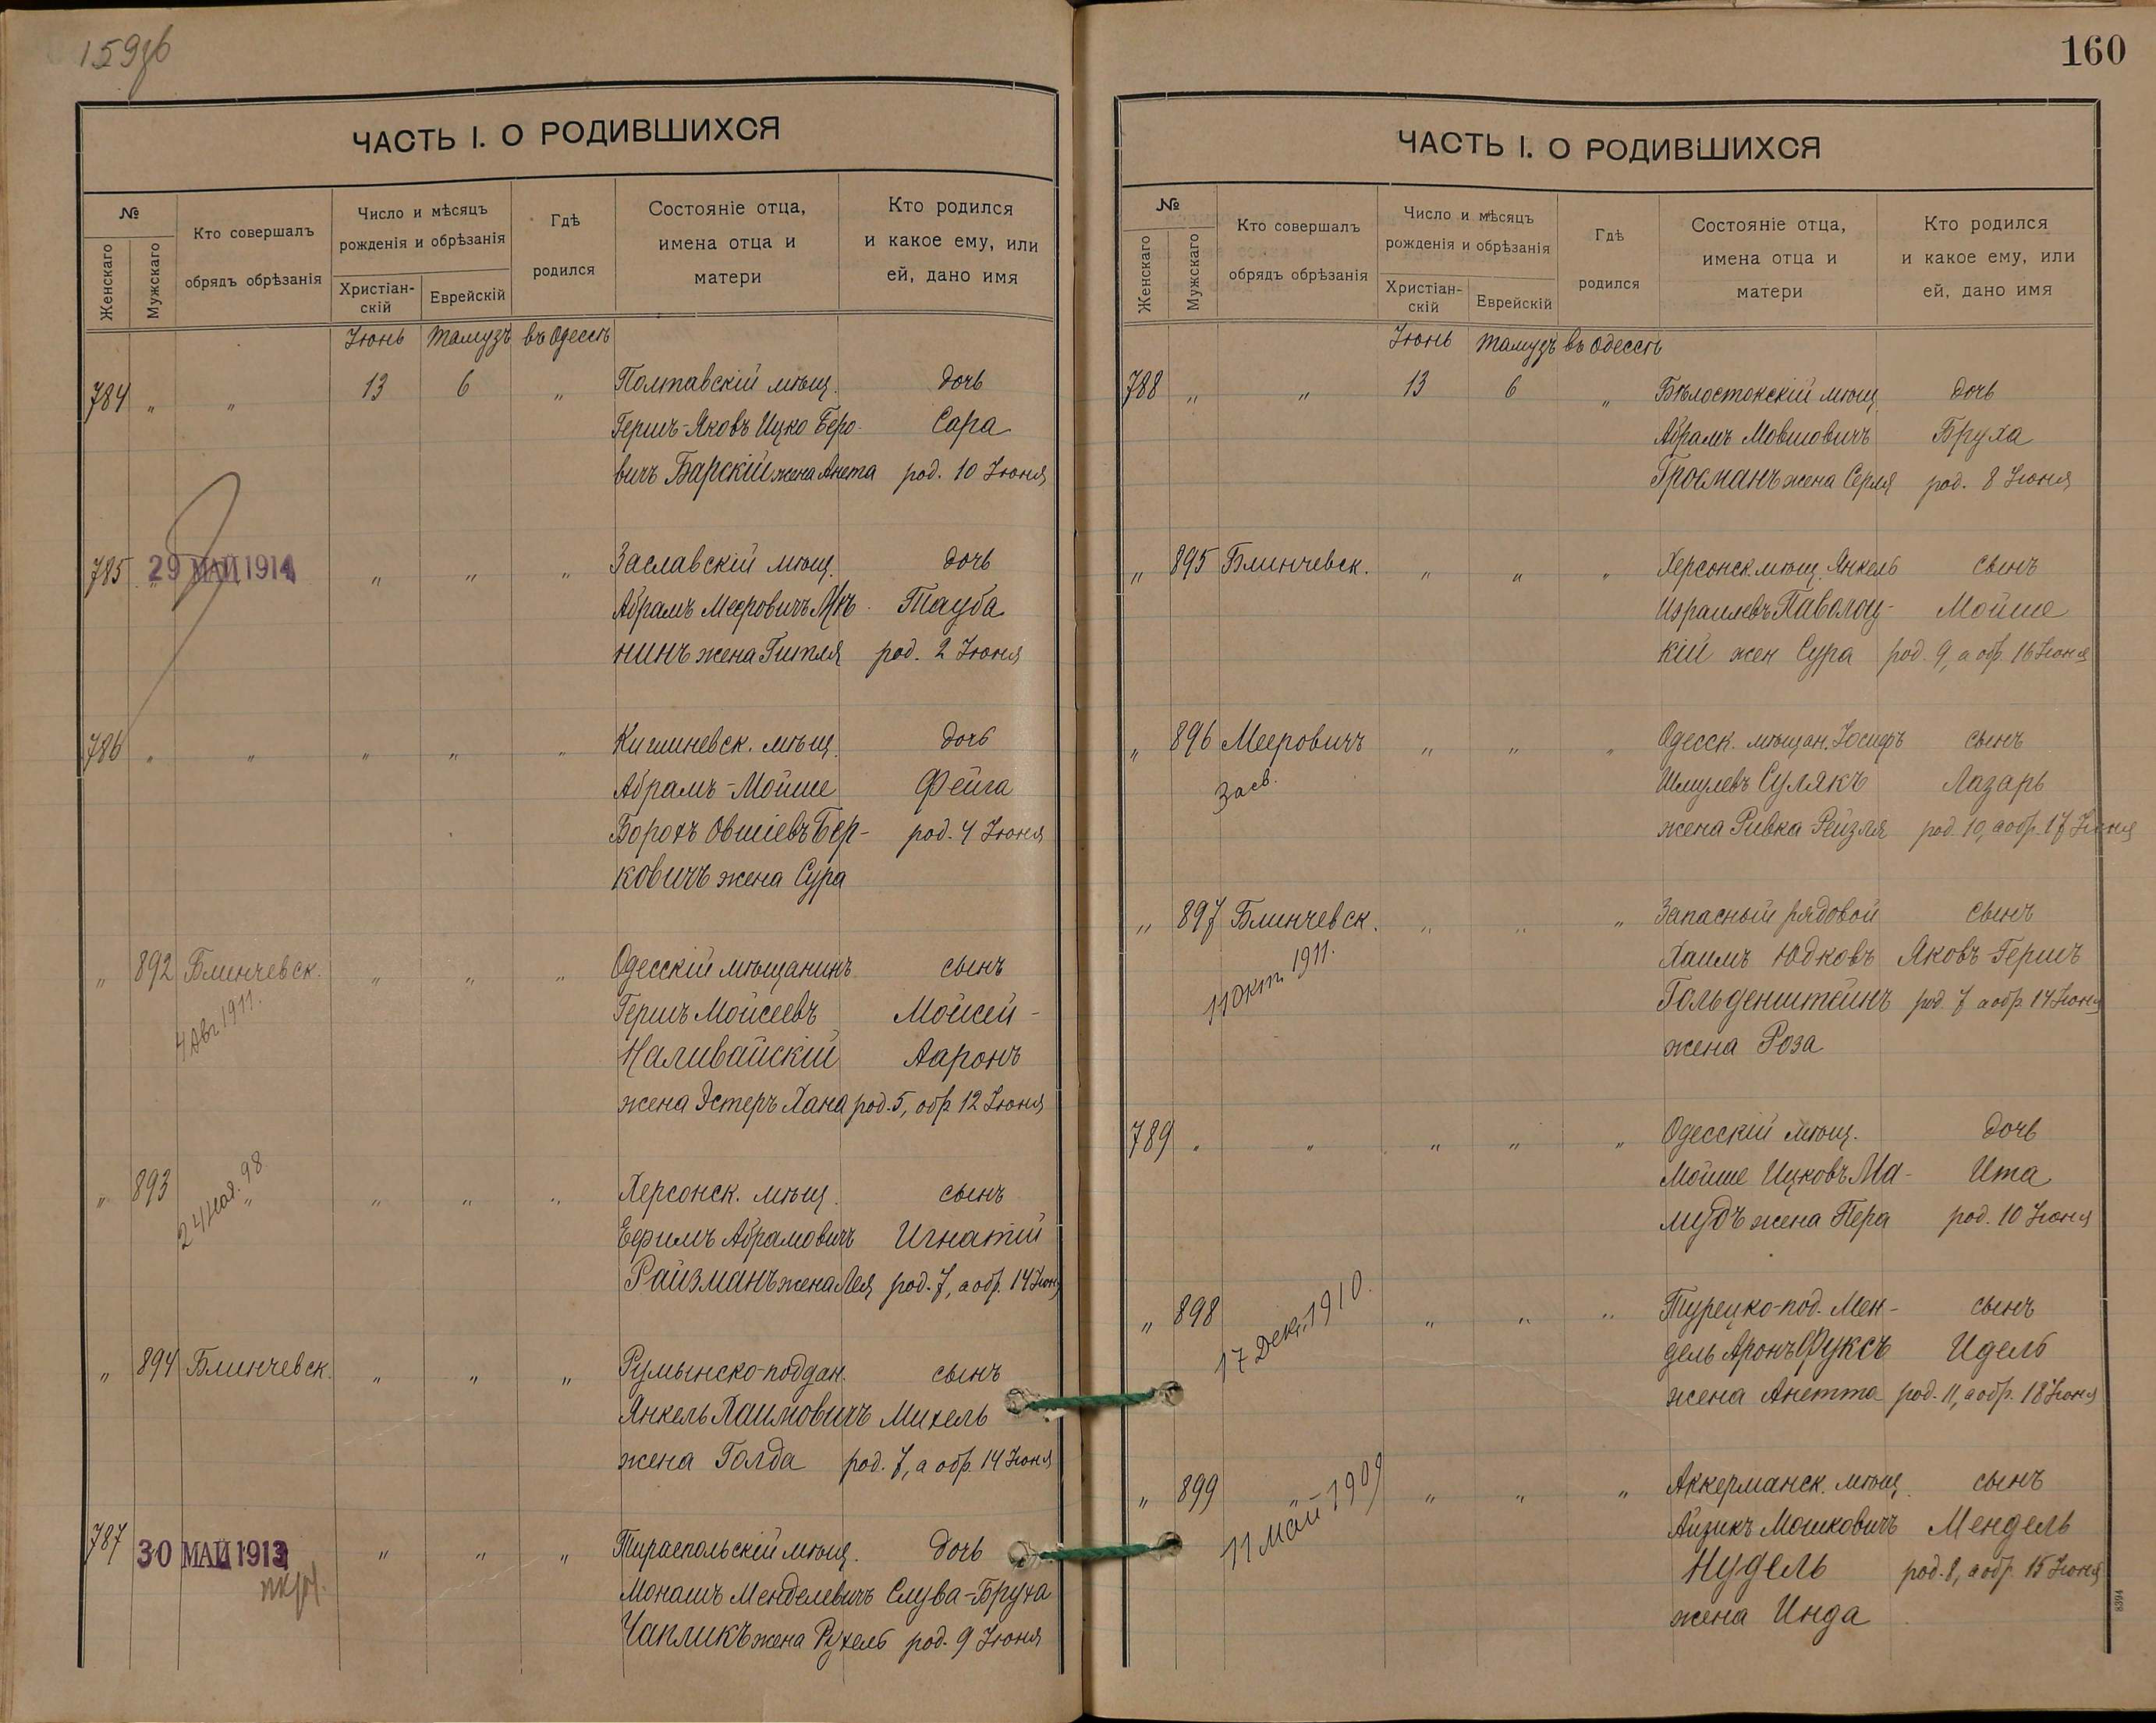 159об
ЧАСТЬ I. О РОДИВШИХСЯ
№
Женскаго
Мужскаго
Кто совершалъ
обрядъ обрѣзанія
Число и мѣсяцъ
рожденія и обрѣзанія
Христіан-
скій
Еврейскій
Гдѣ
родился
Состояніе отца,
имена отца и
матери
Кто родился
и какое ему, или
ей, дано имя
Іюнь Тамузъ въ Одессѣ
784 " " 13 6 " Полтавскій мѣщ. дочь
Гершъ-Яковъ Ицко Беро- Сара
вичъ Барскій жена Анета род. 10 Іюня
785 " 29 МАЙ 1914 " " " Заславскій мѣщ. дочь
Абрамъ Мееровичъ Тауба
нинъ жена Гитля род. 2 Іюня
786 " " " " " Кишиневск. мѣщ. дочь
Абрамъ-Мойше Фейга
Борохъ Овшіевъ Бер- род. 4 Іюня
ковичъ жена Сура
" 892 Блинчевск. " " " Одесскій мѣщанинъ сынъ
4 Авг 1911.
Гершъ Мойсеевъ Мойсей-
Наливайскій Ааронъ
жена Эстеръ Хана род. 5, обр. 12 Іюня
" 893 " " " " Херсонск. мѣщ. сынъ
24 Ноя. 98
Ефимъ Абрамовичъ Игнатій
Райзманъ жена Лея род. 7, а обр. 14 Іюн
" 894 Блинчевск. " " " Румынско-поддан. сынъ
Янкель Хаимовичъ Михель
жена Голда род. 7, а обр. 14 Іюня
787 30 МАЙ 1913 " " " Тираспольскій мѣщ. дочь
Монашъ Менделевичъ Слува-Бруха
Чапликъ жена Рухель род. 9 Іюня
160
ЧАСТЬ I. О РОДИВШИХСЯ
№
Женскаго
Мужскаго
Кто совершалъ
обрядъ обрѣзанія
Число и мѣсяцъ
рожденія и обрѣзанія
Христіан-
скій
Еврейскій
Гдѣ
родился
Состояніе отца,
имена отца и
матери
Кто родился
и какое ему, или
ей, дано имя
Іюнь Тамузъ въ Одессѣ
788 " " 13 6 " Бѣлостокскій мѣщ. дочь
Абрамъ Мовшовичъ Бруха
Гросманъ жена Серля род. 8 Іюня
" 895 Блинчевск. " " " Херсонск. мѣщ. Янкель сынъ
Израилевъ Паволоц- Мойше
кій жен Сура род. 9, а обр. 16 Іюня
" 896 Мееровичъ " " " Одесск. мѣщан. Іосифъ сынъ
Засв.
Шмулевъ Сулякъ Лазарь
жена Ривка Рейзля род. 10, а обр. 17 Іюня
" 897 Блинчевск. " " " Запасный рядовой сынъ
11 Окт. 1911.
Хаимъ Юдковъ Яковъ Гершъ
Гольденштейнъ род. 7 а обр. 14 Іюня
жена Роза
789 " " " " " Одесскій мѣщ. дочь
Мойше Ицковъ Ма- Ита
мудъ жена Пера род. 10 Іюня
" 898 " " " Турецко-под. Мен- сынъ
17 Дек. 1910.
дель Аронъ Фуксъ Идель
жена Анетта род. 11, а обр. 18 Іюня
" 899 " " " " Аккерманск. мѣщ. сынъ
11 май 1909
Айзикъ Мошковичъ Мендель
Нудель род. 8, а обр. 15 Іюня
жена Инда
8394